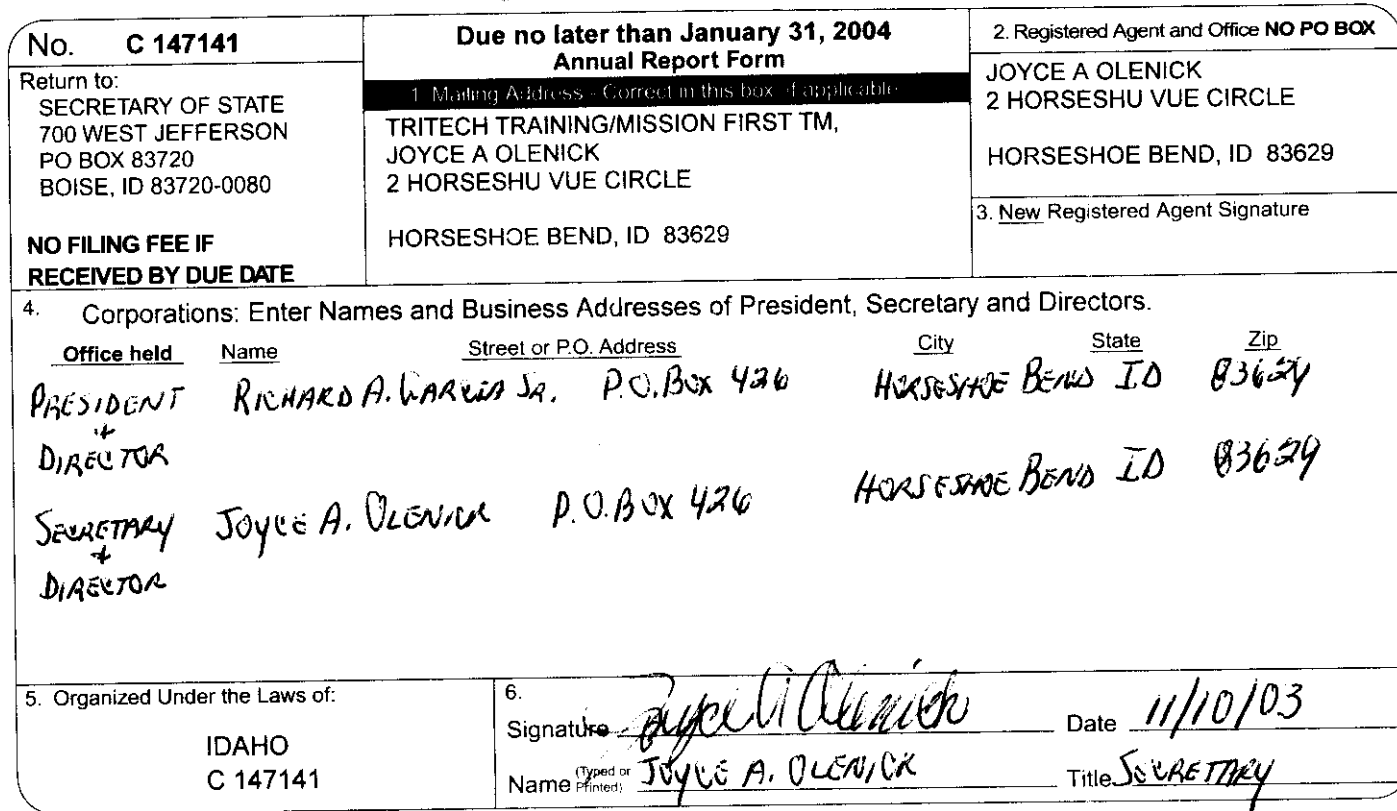 No. C 147141
Return to:
SECRETARY OF STATE
700 WEST JEFFERSON
PO BOX 83720
BOISE, ID 83720-0080
NO FILING FEE IF
RECEIVED BY DUE DATE
Due no later than January 31, 2004
Annual Report Form
1. Mailing Address - Correct in this box if applicable
TRITECH TRAINING/MISSION FIRST TM,
JOYCE A OLENICK
2 HORSESHU VUE CIRCLE
HORSESHOE BEND, ID 83629
2. Registered Agent and Office NO PO BOX
JOYCE A OLENICK
2 HORSESHU VUE CIRCLE
HORSESHOE BEND, ID 83629
3. New Registered Agent Signature
4. Corporations: Enter Names and Business Addresses of President, Secretary and Directors.
Office held Name Street or P.O. Address City State Zip
PRESIDENT RICHARD A. GARCIA JR. P.O. BOX 426 HORSESHOE BEND ID 83629
+
DIRECTOR
SECRETARY JOYCE A. OLENICK P.O. BOX 426 HORSESHOE BEND ID 83629
+
DIRECTOR
5. Organized Under the Laws of:
IDAHO
C 147141
6.
Signature Joyce A Olenick Date 11/10/03
Name (Typed or Printed) JOYCE A. OLENICK Title SECRETARY